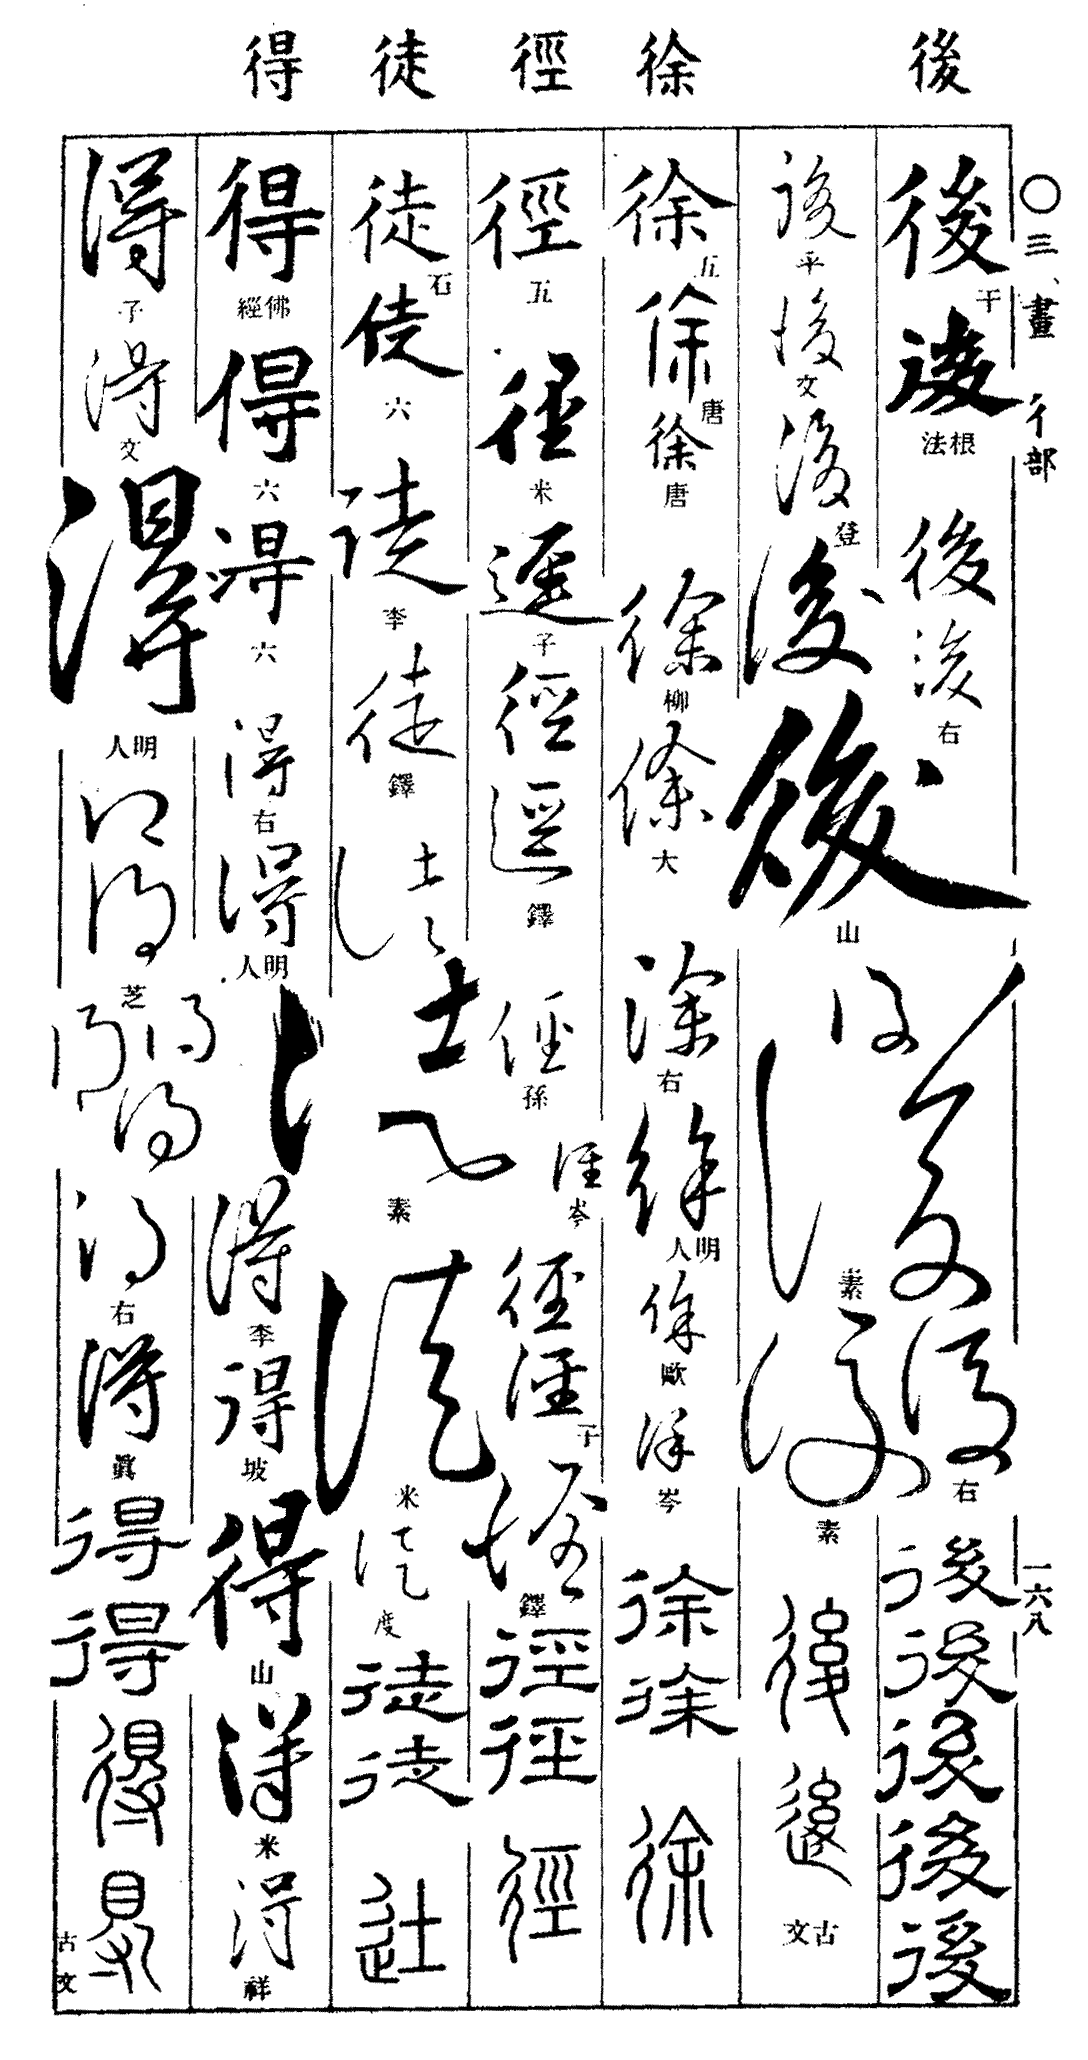 後 徐 徑 徒 得
〇三畫 彳部
一六八
後 干
後 根法
後
後 右
後
後 右
後
後
後
後
後
後 平
後 文
後 登
後
後 山
後
後 素
後 素
後
後 古文
徐 五
徐 唐
徐 唐
徐 柳
徐 大
徐 右
徐 明人
徐 歐
徐 岑
徐
徐
徐
徑 五
徑 米
徑 子
徑
徑 鐸
徑 孫
徑 岑
徑
徑 子
徑 鐸
徑
徑
徑
徒 石
徒 六
徒 李
徒 鐸
徒
徒 素
徒 米
徒 度
徒
徒
徒
得 佛經
得 六
得 六
得 右
得 明人
得 李
得 坡
得 山
得 米
得 祥
得 子
得 文
得 明人
得 芝
得
得
得
得 右
得 眞
得
得
得
得 古文